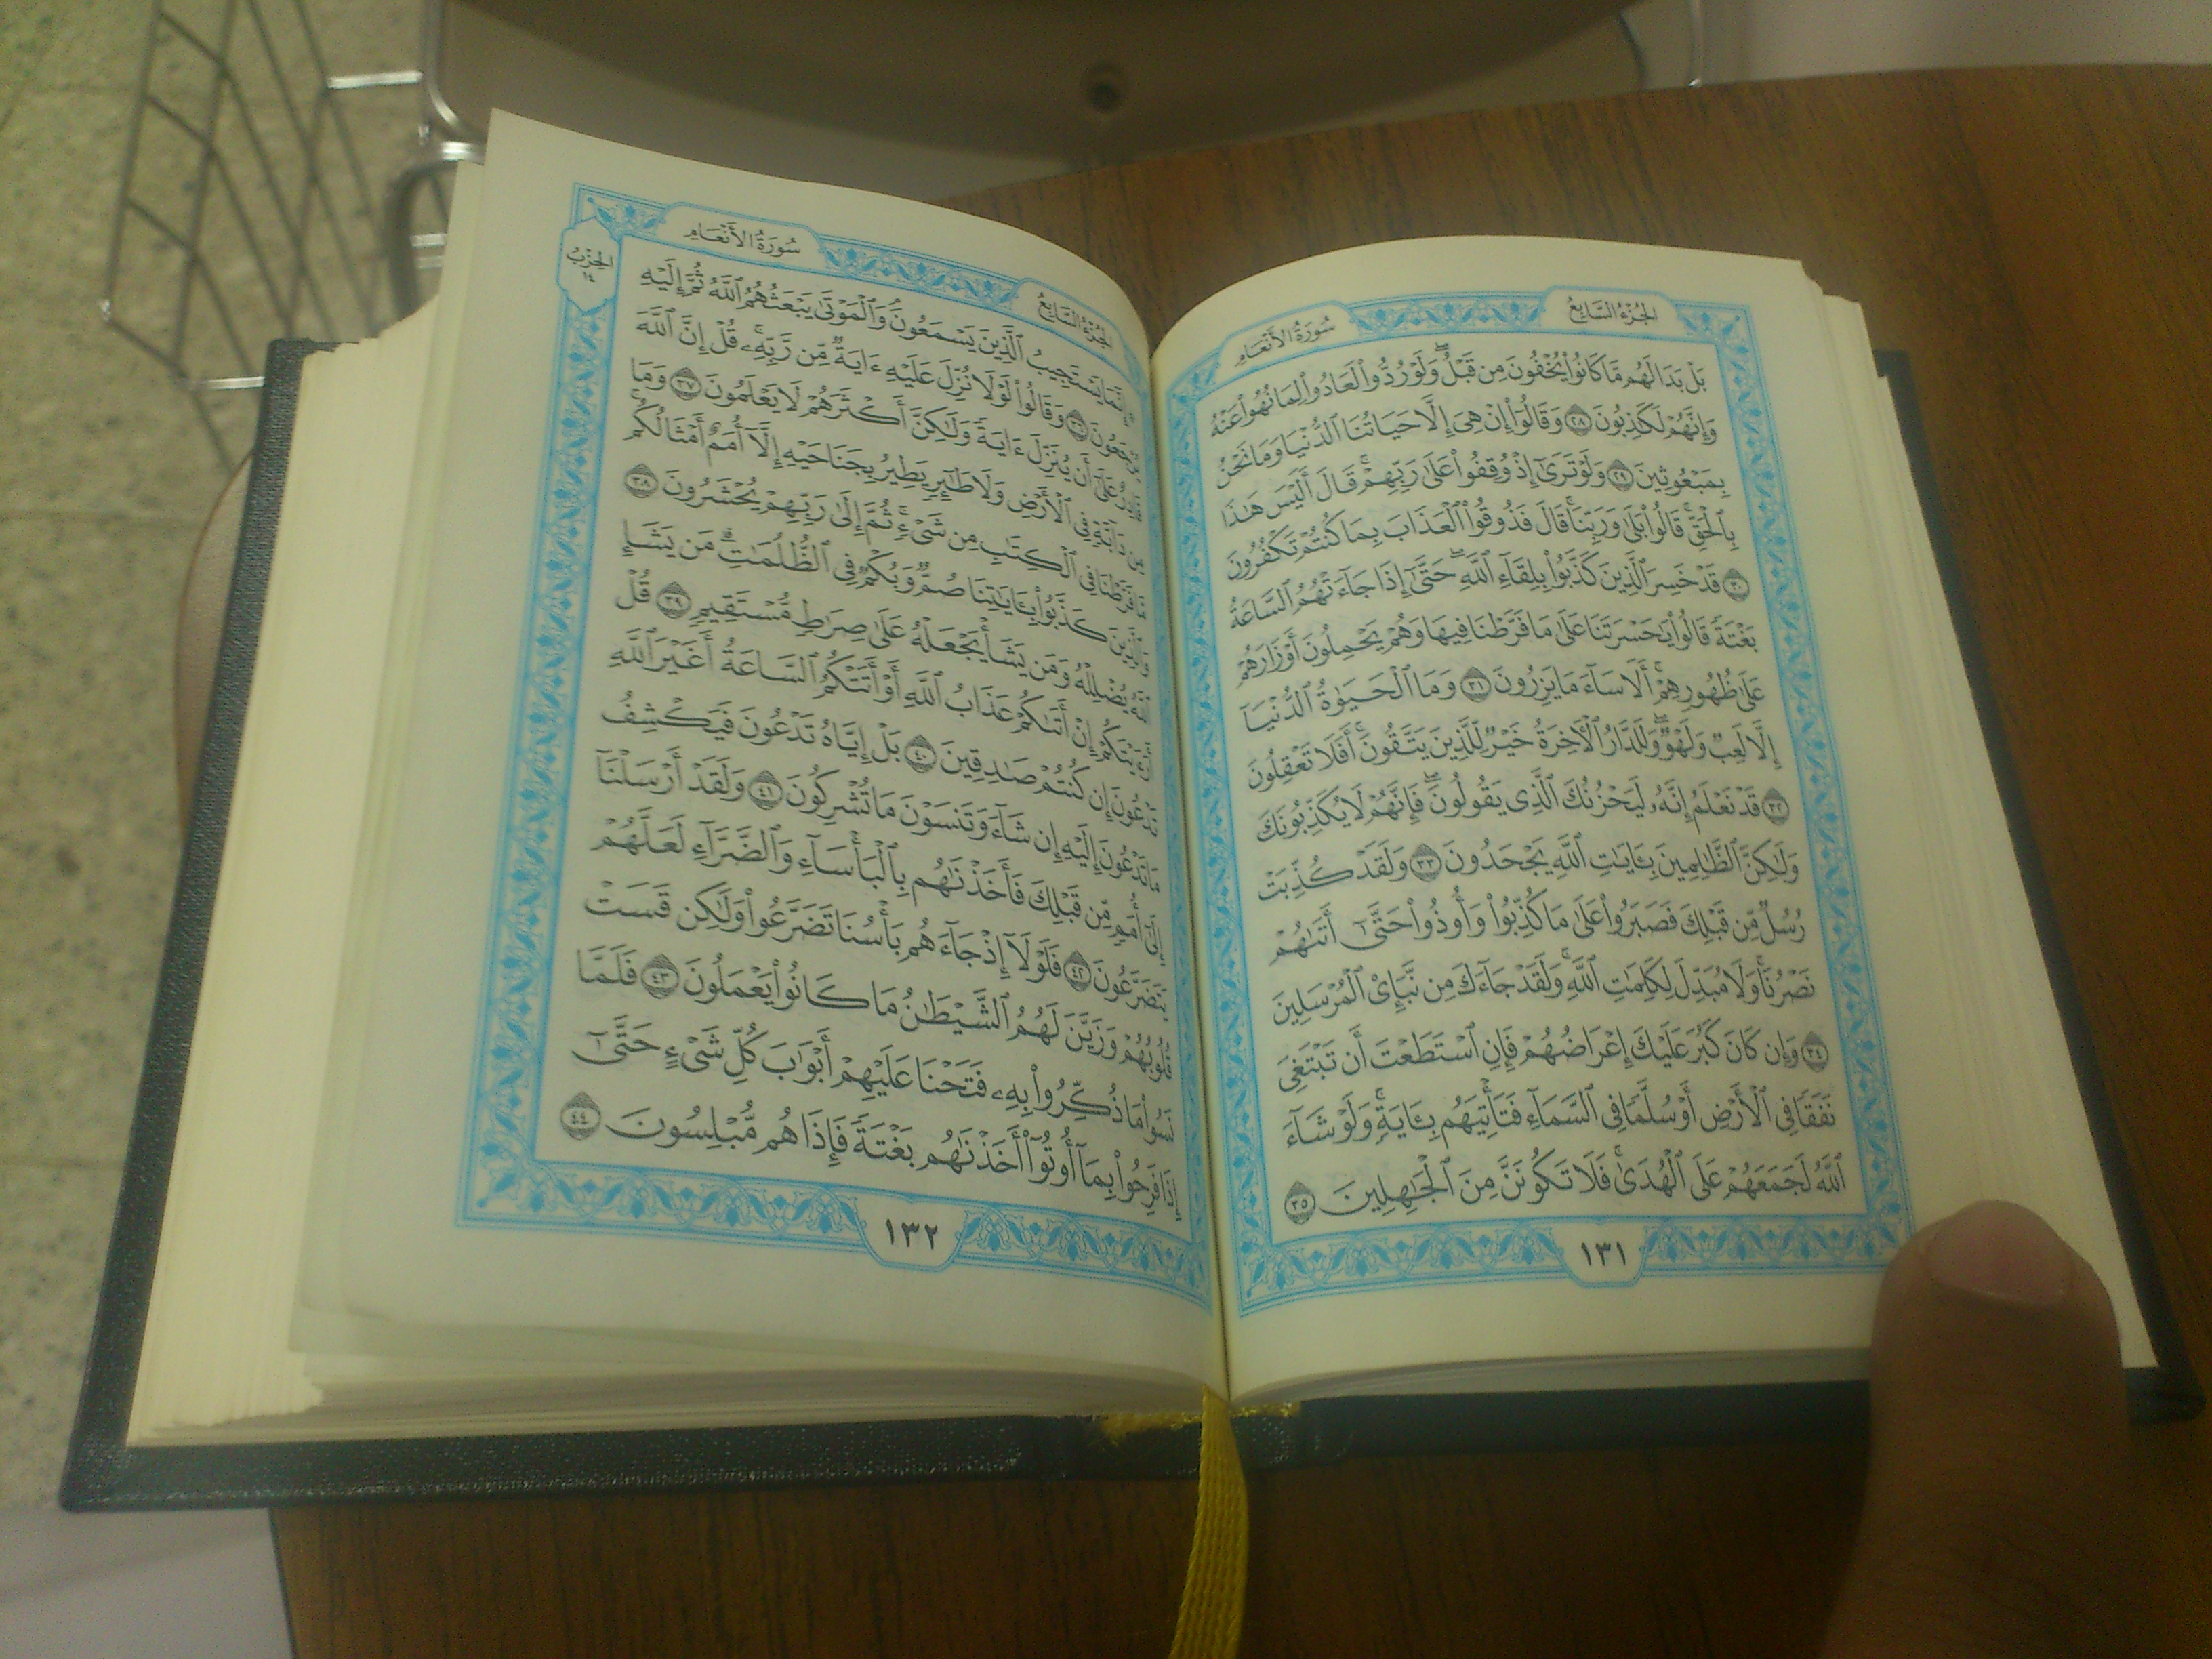 الجُزْءُ السَّابِعُ
سُورَةُ الأَنْعَامِ
بَلْ بَدَا لَهُم مَّا كَانُوا۟ يُخْفُونَ مِن قَبْلُ ۖ وَلَوْ رُدُّوا۟ لَعَادُوا۟ لِمَا نُهُوا۟ عَنْهُ
وَإِنَّهُمْ لَكَـٰذِبُونَ ٢٨ وَقَالُوٓا۟ إِنْ هِىَ إِلَّا حَيَاتُنَا ٱلدُّنْيَا وَمَا نَحْنُ
بِمَبْعُوثِينَ ٢٩ وَلَوْ تَرَىٰٓ إِذْ وُقِفُوا۟ عَلَىٰ رَبِّهِمْ ۚ قَالَ أَلَيْسَ هَـٰذَا
بِٱلْحَقِّ ۚ قَالُوا۟ بَلَىٰ وَرَبِّنَا ۚ قَالَ فَذُوقُوا۟ ٱلْعَذَابَ بِمَا كُنتُمْ تَكْفُرُونَ
٣٠ قَدْ خَسِرَ ٱلَّذِينَ كَذَّبُوا۟ بِلِقَآءِ ٱللَّهِ ۖ حَتَّىٰٓ إِذَا جَآءَتْهُمُ ٱلسَّاعَةُ
بَغْتَةً قَالُوا۟ يَـٰحَسْرَتَنَا عَلَىٰ مَا فَرَّطْنَا فِيهَا وَهُمْ يَحْمِلُونَ أَوْزَارَهُمْ
عَلَىٰ ظُهُورِهِمْ ۚ أَلَا سَآءَ مَا يَزِرُونَ ٣١ وَمَا ٱلْحَيَوٰةُ ٱلدُّنْيَآ
إِلَّا لَعِبٌ وَلَهْوٌ ۖ وَلَلدَّارُ ٱلْـَٔاخِرَةُ خَيْرٌ لِّلَّذِينَ يَتَّقُونَ ۗ أَفَلَا تَعْقِلُونَ
٣٢ قَدْ نَعْلَمُ إِنَّهُۥ لَيَحْزُنُكَ ٱلَّذِى يَقُولُونَ ۖ فَإِنَّهُمْ لَا يُكَذِّبُونَكَ
وَلَـٰكِنَّ ٱلظَّـٰلِمِينَ بِـَٔايَـٰتِ ٱللَّهِ يَجْحَدُونَ ٣٣ وَلَقَدْ كُذِّبَتْ
رُسُلٌ مِّن قَبْلِكَ فَصَبَرُوا۟ عَلَىٰ مَا كُذِّبُوا۟ وَأُوذُوا۟ حَتَّىٰٓ أَتَىٰهُمْ
نَصْرُنَا ۚ وَلَا مُبَدِّلَ لِكَلِمَـٰتِ ٱللَّهِ ۚ وَلَقَدْ جَآءَكَ مِن نَّبَإِى۟ ٱلْمُرْسَلِينَ
٣٤ وَإِن كَانَ كَبُرَ عَلَيْكَ إِعْرَاضُهُمْ فَإِنِ ٱسْتَطَعْتَ أَن تَبْتَغِىَ
نَفَقًا فِى ٱلْأَرْضِ أَوْ سُلَّمًا فِى ٱلسَّمَآءِ فَتَأْتِيَهُم بِـَٔايَةٍ ۚ وَلَوْ شَآءَ
ٱللَّهُ لَجَمَعَهُمْ عَلَى ٱلْهُدَىٰ ۚ فَلَا تَكُونَنَّ مِنَ ٱلْجَـٰهِلِينَ ٣٥
١٣١
الجُزْءُ السَّابِعُ
سُورَةُ الأَنْعَامِ
الحِزْبُ
١٤
إِنَّمَا يَسْتَجِيبُ ٱلَّذِينَ يَسْمَعُونَ ۘ وَٱلْمَوْتَىٰ يَبْعَثُهُمُ ٱللَّهُ ثُمَّ إِلَيْهِ
يُرْجَعُونَ ٣٦ وَقَالُوا۟ لَوْلَا نُزِّلَ عَلَيْهِ ءَايَةٌ مِّن رَّبِّهِۦ ۚ قُلْ إِنَّ ٱللَّهَ
قَادِرٌ عَلَىٰٓ أَن يُنَزِّلَ ءَايَةً وَلَـٰكِنَّ أَكْثَرَهُمْ لَا يَعْلَمُونَ ٣٧ وَمَا
مِن دَآبَّةٍ فِى ٱلْأَرْضِ وَلَا طَـٰٓئِرٍ يَطِيرُ بِجَنَاحَيْهِ إِلَّآ أُمَمٌ أَمْثَالُكُم ۚ
مَّا فَرَّطْنَا فِى ٱلْكِتَـٰبِ مِن شَىْءٍ ۚ ثُمَّ إِلَىٰ رَبِّهِمْ يُحْشَرُونَ ٣٨
وَٱلَّذِينَ كَذَّبُوا۟ بِـَٔايَـٰتِنَا صُمٌّ وَبُكْمٌ فِى ٱلظُّلُمَـٰتِ ۗ مَن يَشَإِ
ٱللَّهُ يُضْلِلْهُ وَمَن يَشَأْ يَجْعَلْهُ عَلَىٰ صِرَٰطٍ مُّسْتَقِيمٍ ٣٩ قُلْ
أَرَءَيْتَكُمْ إِنْ أَتَىٰكُمْ عَذَابُ ٱللَّهِ أَوْ أَتَتْكُمُ ٱلسَّاعَةُ أَغَيْرَ ٱللَّهِ
تَدْعُونَ إِن كُنتُمْ صَـٰدِقِينَ ٤٠ بَلْ إِيَّاهُ تَدْعُونَ فَيَكْشِفُ
مَا تَدْعُونَ إِلَيْهِ إِن شَآءَ وَتَنسَوْنَ مَا تُشْرِكُونَ ٤١ وَلَقَدْ أَرْسَلْنَآ
إِلَىٰٓ أُمَمٍ مِّن قَبْلِكَ فَأَخَذْنَـٰهُم بِٱلْبَأْسَآءِ وَٱلضَّرَّآءِ لَعَلَّهُمْ
يَتَضَرَّعُونَ ٤٢ فَلَوْلَآ إِذْ جَآءَهُم بَأْسُنَا تَضَرَّعُوا۟ وَلَـٰكِن قَسَتْ
قُلُوبُهُمْ وَزَيَّنَ لَهُمُ ٱلشَّيْطَـٰنُ مَا كَانُوا۟ يَعْمَلُونَ ٤٣ فَلَمَّا
نَسُوا۟ مَا ذُكِّرُوا۟ بِهِۦ فَتَحْنَا عَلَيْهِمْ أَبْوَٰبَ كُلِّ شَىْءٍ حَتَّىٰٓ
إِذَا فَرِحُوا۟ بِمَآ أُوتُوٓا۟ أَخَذْنَـٰهُم بَغْتَةً فَإِذَا هُم مُّبْلِسُونَ ٤٤
١٣٢